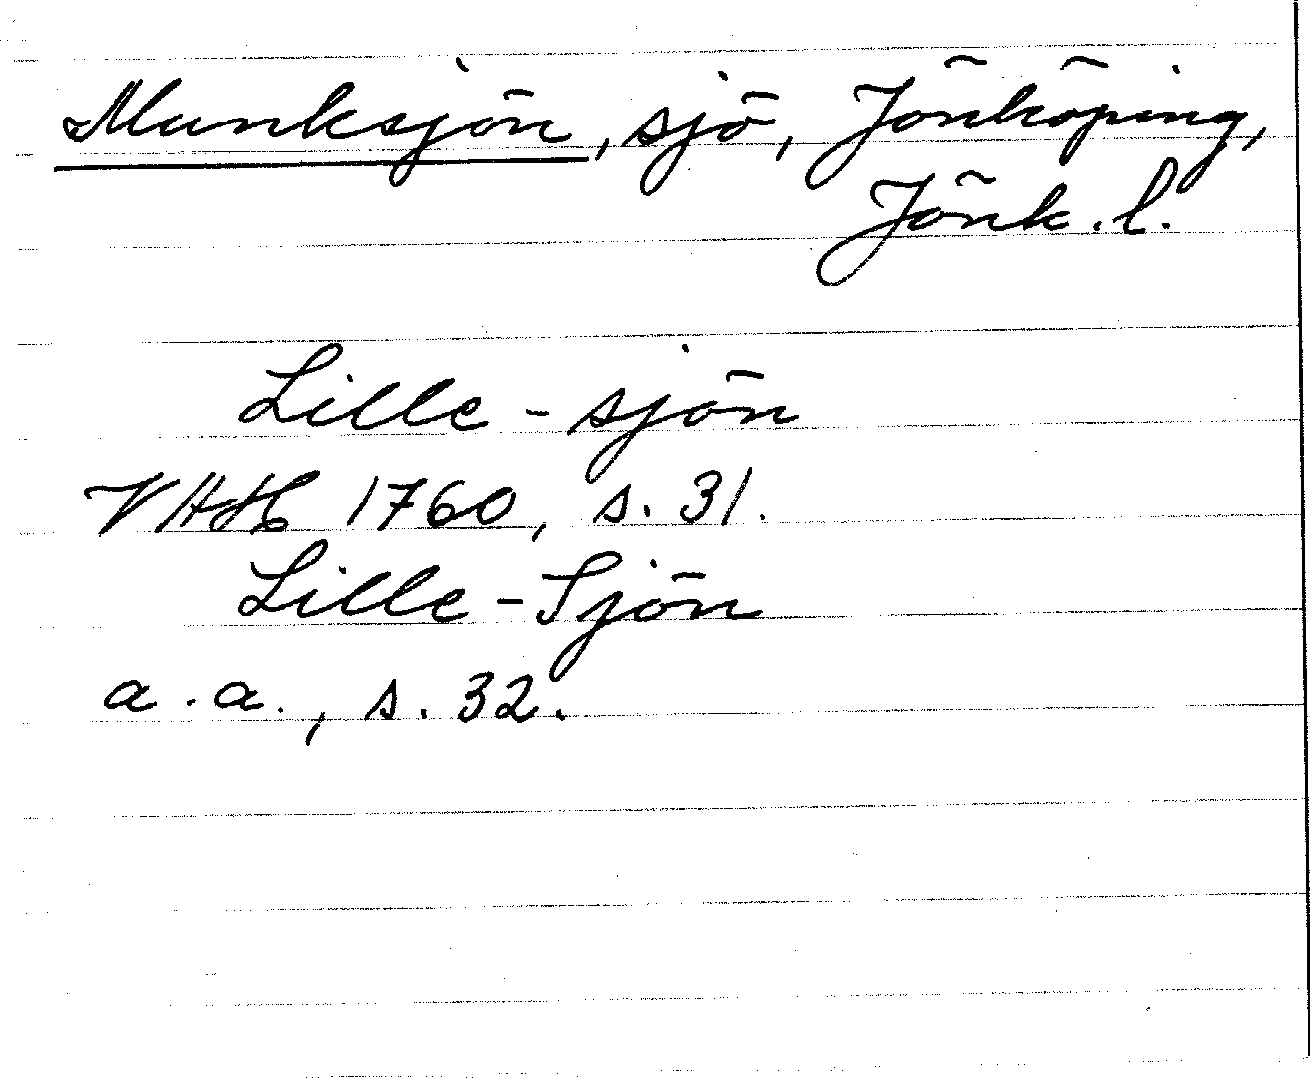 Munksjön, sjö, Jönköping,
Jönk. l.
Lille-sjön
VHAH 1760, s. 31.
Lille-Sjön
a.a., s. 32.